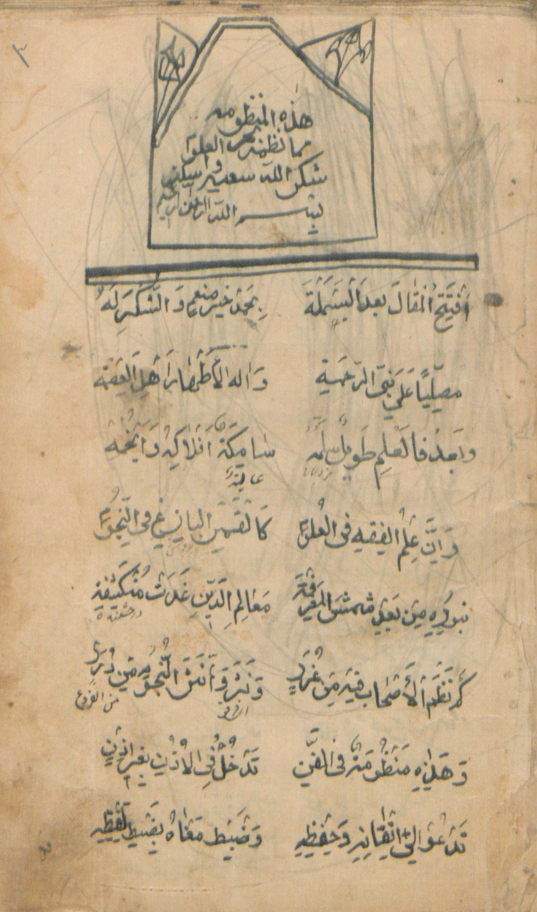 هذه المنظومة
مما نظمه العلوم
شكر الله سعيه
بسم الله الرحمن الرحيم
افتتح المقال بعد البسملة بحمد خير منعم والشكر له
مصليا على نبي الرحمة واله الأطهار اهل العصمة
وبعد فالعلم طويل سلمه سامكة افلاكه وانجمه
عالية
وان علم الفقه في العلوم كالقمر البازغ في النجوم
بنوره من بعد شمس المعرفة معالم الدين غدت منكشفة
كم نظم الأصحاب فيه من غرر ونثروا من درر
وهذه منظومة في الفن تدخل في الاذن بغير اذن
تدعو الى اتقانه وحفظه وضبط معناه بضبط لفظه